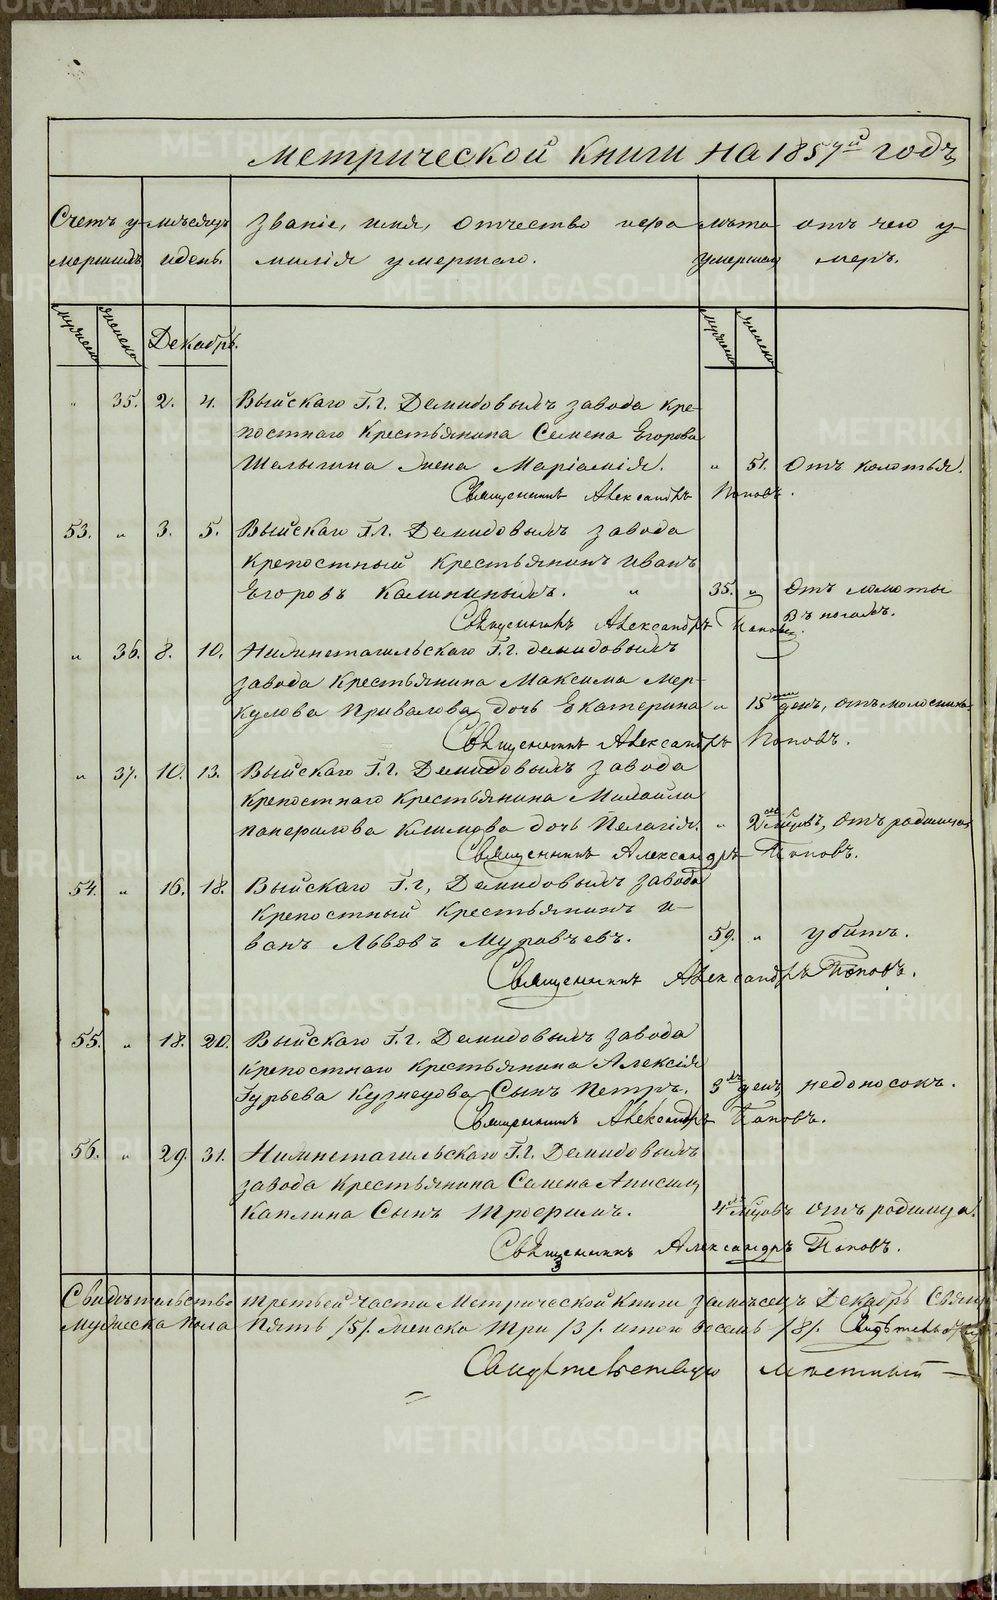 Метрической книги на 1857й годъ
Счетъ у- мѣсяцъ званіе, имя, отчество и фа лѣта отъ чего у-
мершихъ идень. милія умершаго. умершаго меръ.
мужеска женска Декабрь. мужеска женска
" 35. 2. 4. Выйскаго Г.г. Демидовыхъ завода кре-
постнаго Крестьянина Семена Егорова
Шалыгина Жена Маріамія. " 51. Отъ колотья.
Священникъ Александръ Поповъ.
53. " 3. 5. Выйскаго Г.г. Демидовыхъ завода
крепостный крестьянинъ Иванъ
Егоровъ Калининыхъ. " 35. " Отъ ломоты
въ ногахъ.
Священникъ Александръ Поповъ.
" 36. 8. 10. Нижнетагильскаго Г.г. демидовыхъ
завода Крестьянина Максима Мер-
кулова Привалова дочь Екатерина " 15 ден, отъ
Священникъ Александръ Поповъ.
" 37. 10. 13. Выйскаго Г.г. Демидовыхъ завода
крепостнаго крестьянина Михайла
панфилова Климова дочь Пелагія. " 2 мѣцовъ, отъ родимца
Священникъ Александръ Поповъ.
54. " 16. 18. Выйскаго Г.г. Демидовыхъ завода
Крепостный крестьянинъ И-
ванъ Львовъ Муравьевъ. 59. " убитъ.
Священникъ Александръ Поповъ.
55. " 18. 20. Выйскаго Г.г. Демидовыхъ завода
крепостнаго крестьянина Алексія
Гурьева Кузнецова Сынъ Петръ. 3хъ ден, недоносокъ.
Священникъ Александръ Поповъ.
56. " 29. 31. Нижнетагильскаго Г.г. Демидовыхъ
завода крестьянина Семена Анисим
Каплина Сынъ Трофимъ. 4 мѣцовъ отъ родимца.
Священникъ Александръ Поповъ.
3
Свидѣтельство третьей части Метрической Книги за мѣсецъ Декабрь
Мужеска пола пять /5/. женска три /3/. итого восемь /8/.
Свидѣтельствую мѣстный —
METRIKI.GASO-URAL.RU